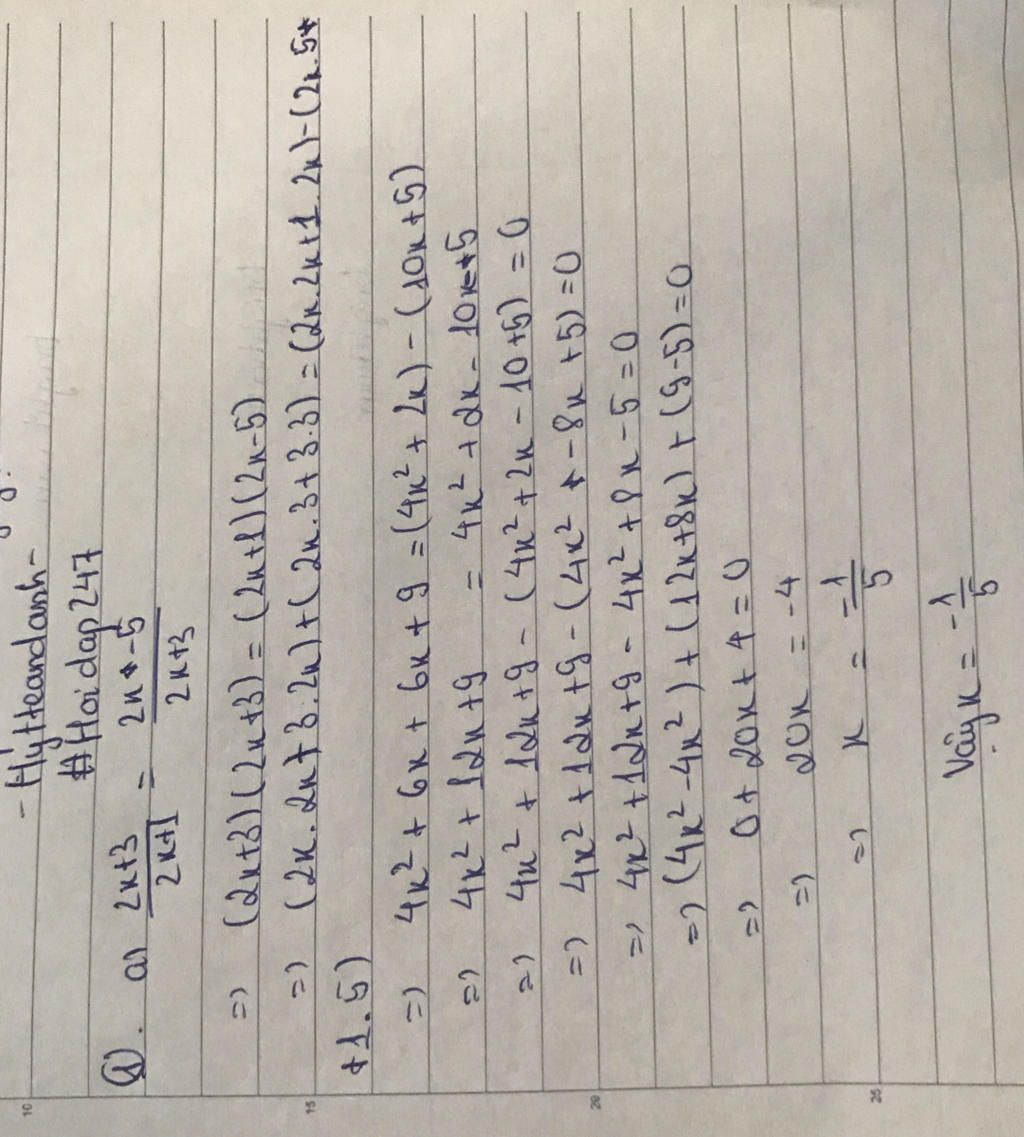 - Hýtteandanh -
#Hoidap247
①. a) 2x+3 / 2x+1 = 2x-5 / 2x+3
=> (2x+3)(2x+3) = (2x+1)(2x-5)
=> (2x.2x+3.2x)+(2x.3+3.3) = (2x.2x+1.2x)-(2x.5+
+1.5)
=> 4x²+6x+6x+9 = (4x²+2x)-(10x+5)
=> 4x²+12x+9 = 4x²+2x-10x+5
=> 4x²+12x+9-(4x²+2x-10+5)=0
=> 4x²+12x+9-(4x²-8x+5)=0
=> 4x²+12x+9-4x²+8x-5=0
=> (4x²-4x²)+(12x+8x)+(9-5)=0
=> 0+20x+4=0
=> 20x = -4
=> x = -1/5
Vậy x = -1/5
10
15
20
25